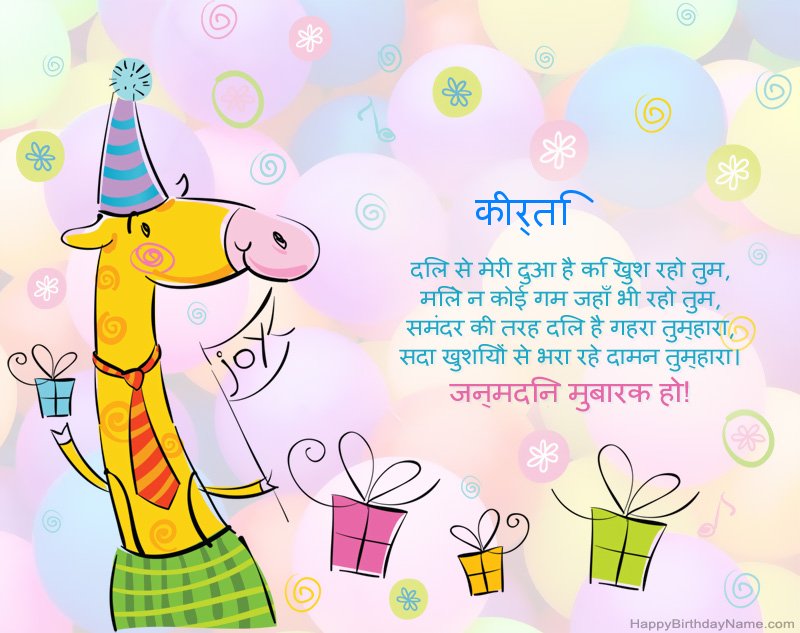 कीर्ति
दिल से मेरी दुआ है कि खुश रहो तुम,
मिले न कोई गम जहाँ भी रहो तुम,
समंदर की तरह दिल है गहरा तुम्हारा,
सदा खुशियों से भरा रहे दामन तुम्हारा।
जन्मदिन मुबारक हो!
joy
HappyBirthdayName.com